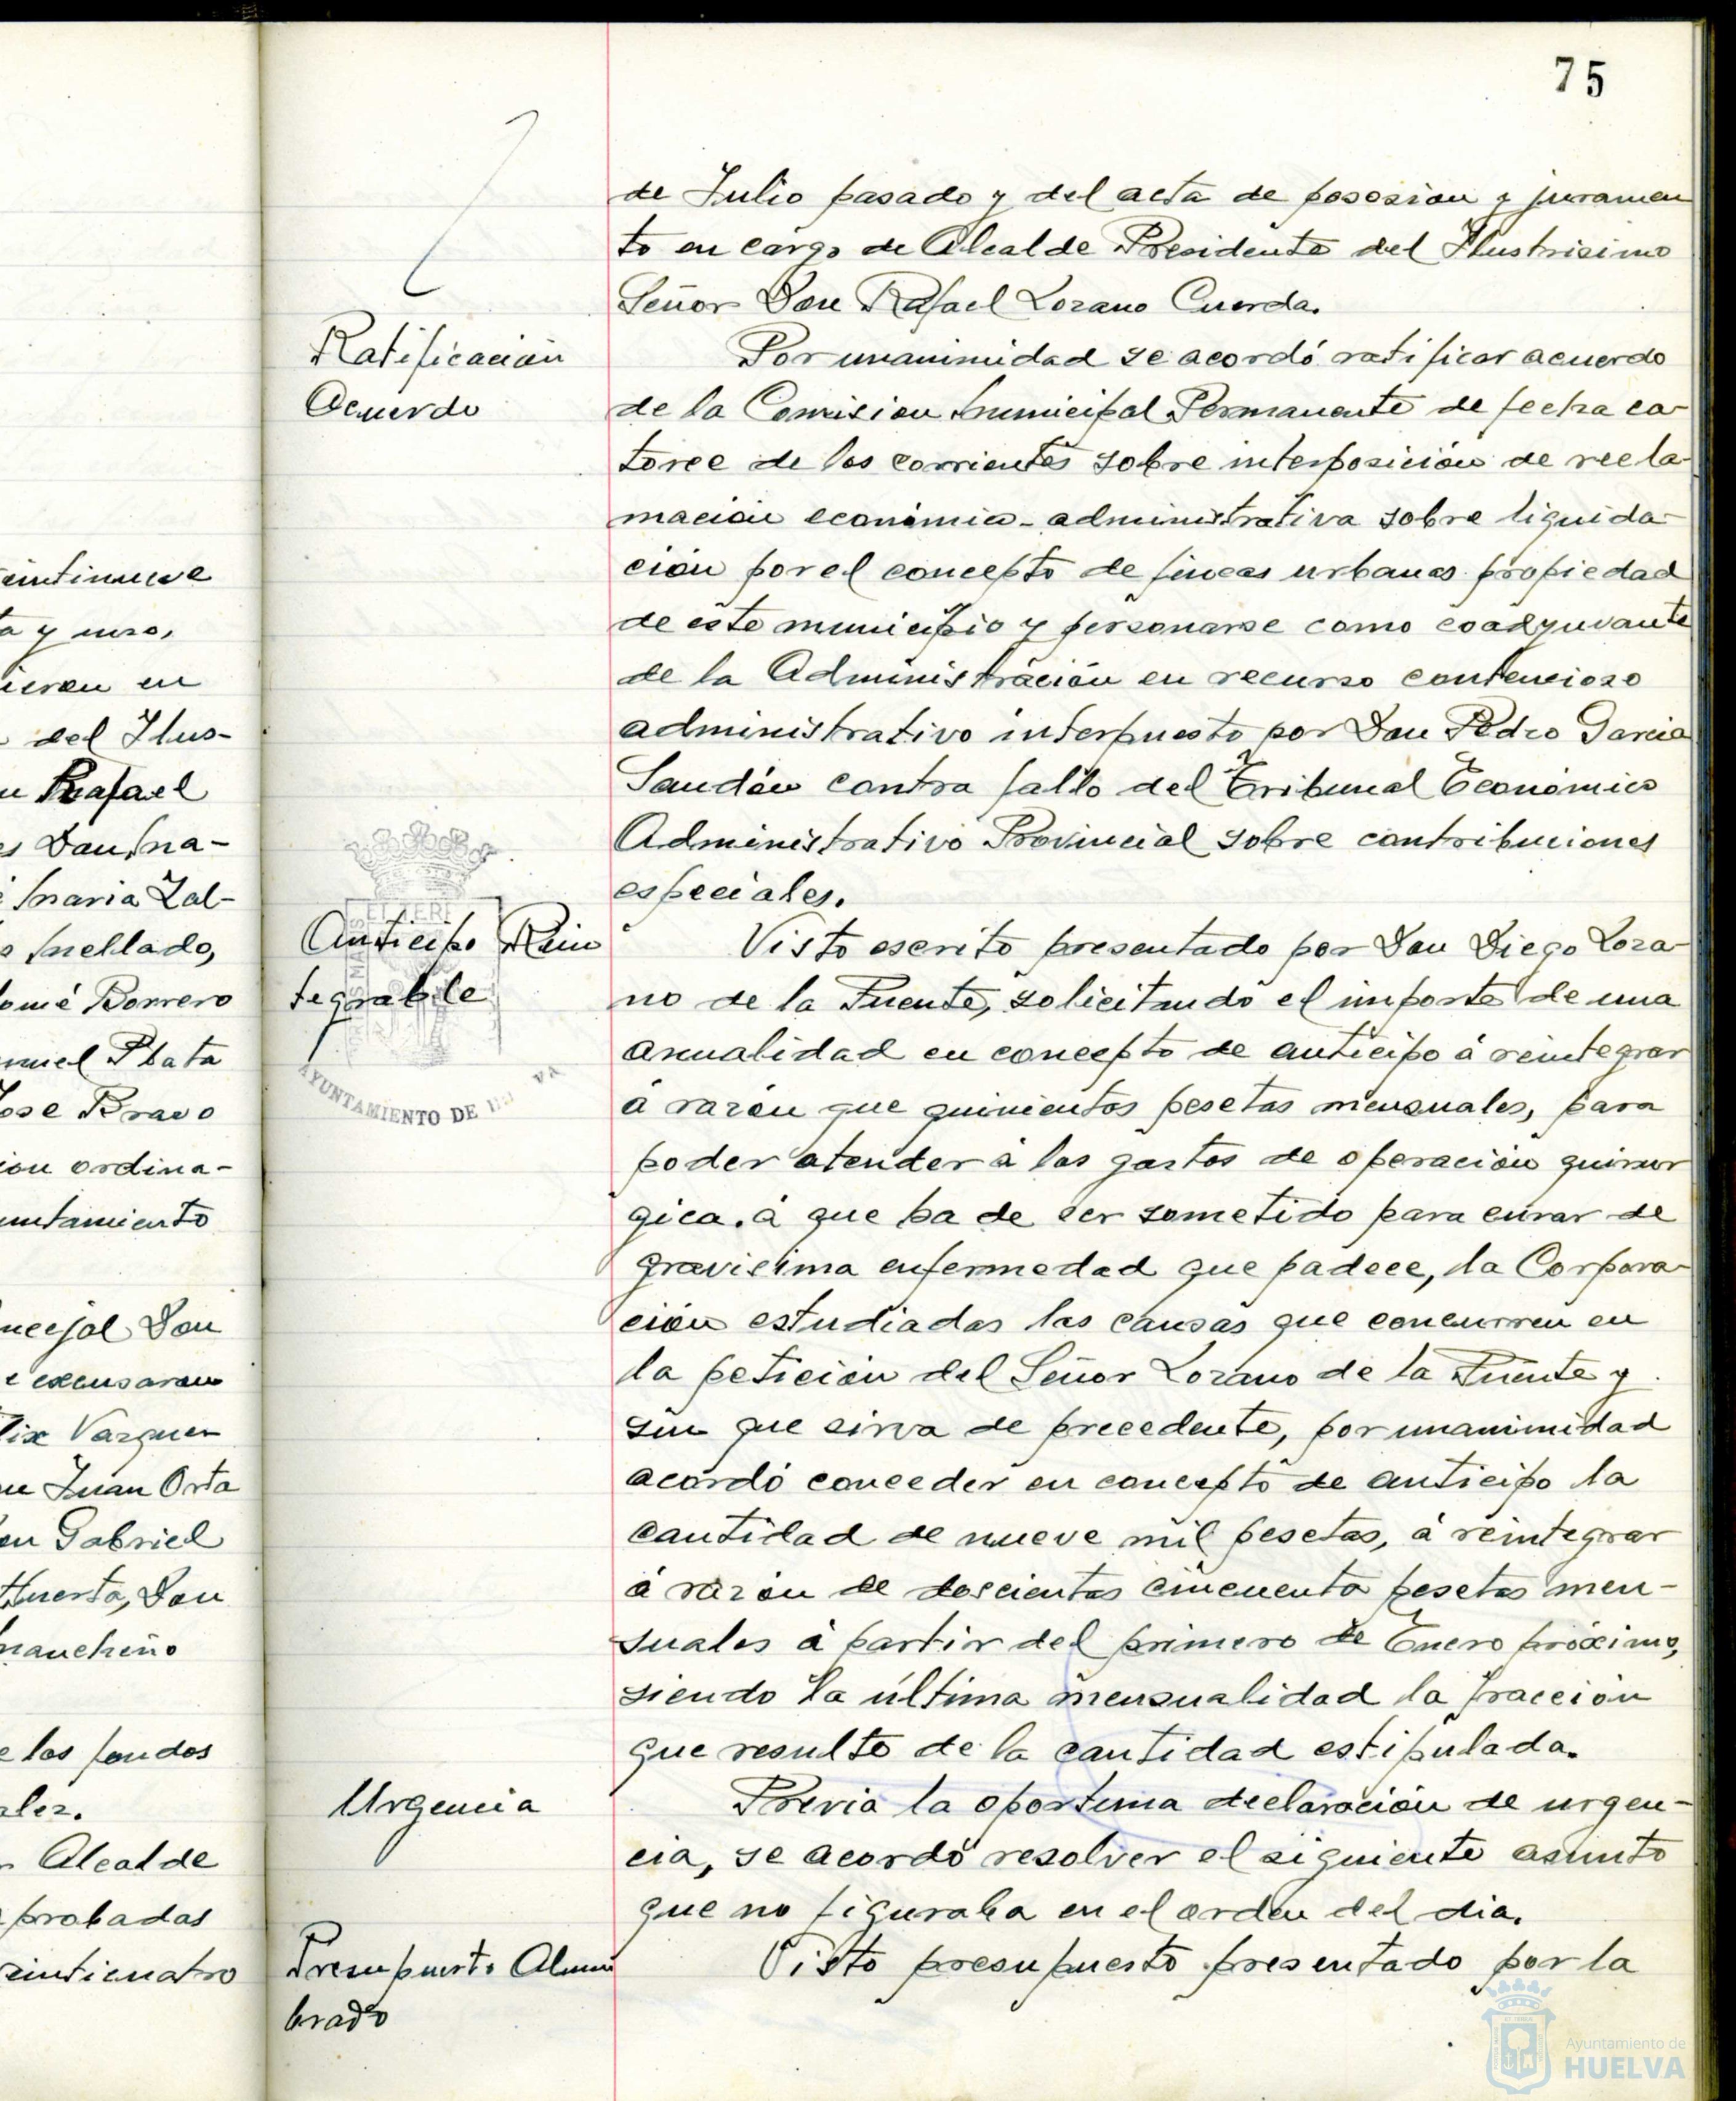 75
eintinueve
a y uno,
ieron en
del Ilus-
n Rafael
es Don Ma-
Maria Zal-
o Mellado,
omé Borrero
nuel Plata
Jose Bravo
ion ordina-
untamiento
ncejal Don
e excusaron
lix Vazquez
n Juan Orta
on Gabriel
Huerta, Don
mancheño
e los fondos
ales.
Alcalde
probadas
einticuatro
de Julio pasado y del acta de posesion y juramen
to en cargo de Alcalde Presidente del Ilustrisimo
Señor Don Rafael Lozano Cuerda.
Ratificación
Acuerdo
Por unanimidad se acordó ratificar acuerdo
de la Comision Municipal Permanente de fecha ca-
torce de los corrientes sobre interposición de recla-
mación económico-administrativa sobre liquida-
ción por el concepto de fincas urbanas propiedad
de este municipio y personarse como coadyuvante
de la Administración en recurso contencioso
administrativo interpuesto por Don Pedro Garcia
contra fallo del Tribunal Económico
Administrativo Provincial sobre contribuciones
especiales.
Anticipo Rein
tegrable
AYUNTAMIENTO DE
Visto escrito presentado por Don Diego Loza-
no de la Fuente, solicitando el importe de una
anualidad en concepto de anticipo á reintegrar
á razón que quinientos pesetas mensuales, para
poder atender á los gastos de operación quirur
gica. á que ha de ser sometido para curar de
gravisima enfermedad que padece, la Corpora-
ción estudiadas las causas que concurren en
la petición del Señor Lozano de la Fuente y
sin que sirva de precedente, por unanimidad
acordó conceder en concepto de anticipo la
cantidad de nueve mil pesetas, á reintegrar
á razón de doscientas cincuenta pesetas men-
suales á partir del primero de Enero próximo,
siendo la última mensualidad la fracción
que resulte de la cantidad estipulada.
Urgencia
Previa la oportuna declaración de urgen-
cia, se acordó resolver el siguiente asunto
que no figuraba en el orden del dia.
Presupuesto Alum
brado
Visto presupuesto presentado por la
Ayuntamiento de
HUELVA